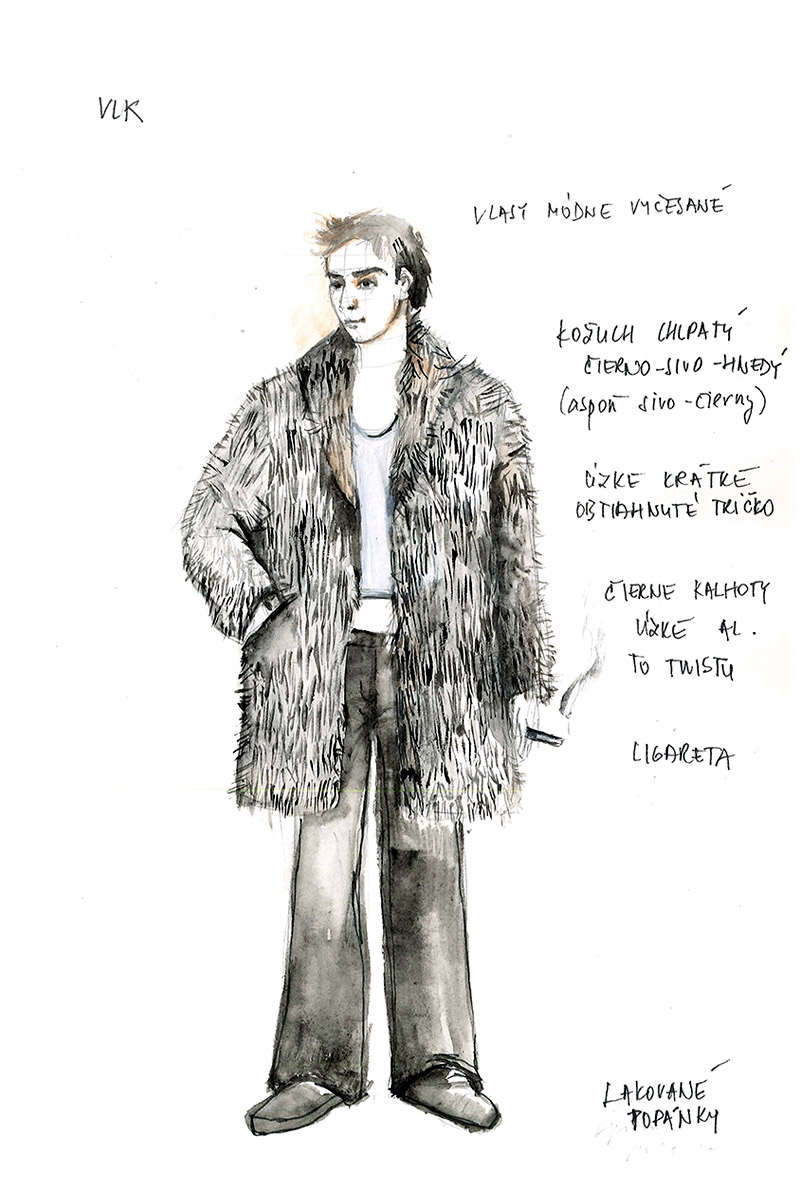 VLK
VLASY MÓDNE VYČESANÉ
KOŽUCH CHLPATÝ
ČIERNO-SIVO-HNEDÝ
(aspoň sivo-čierny)
ÚZKE KRÁTKE
OBTIAHNUTÉ TRIČKO
ČIERNE KALHOTY
ÚZKE AL.
TO TWISTU
CIGARETA
LAKOVANÉ
TOPÁNKY